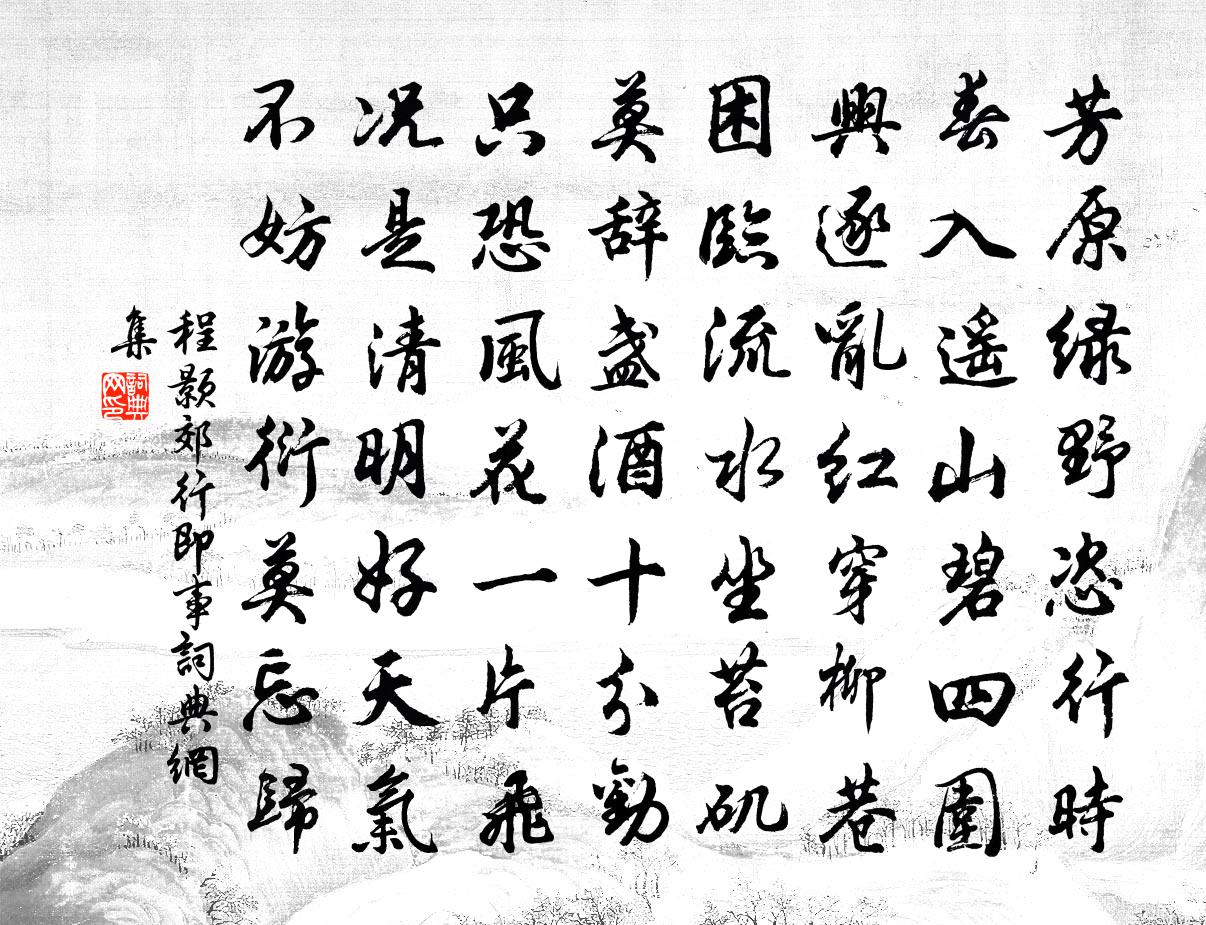 芳原绿野恣行時
春入遥山碧四圍
興逐亂红穿柳巷
困臨流水坐苔矶
莫辞盏酒十分勸
只恐風花一片飛
况是清明好天氣
不妨游衍莫忘歸
程颢郊行即事詞典網
集
詞典網印